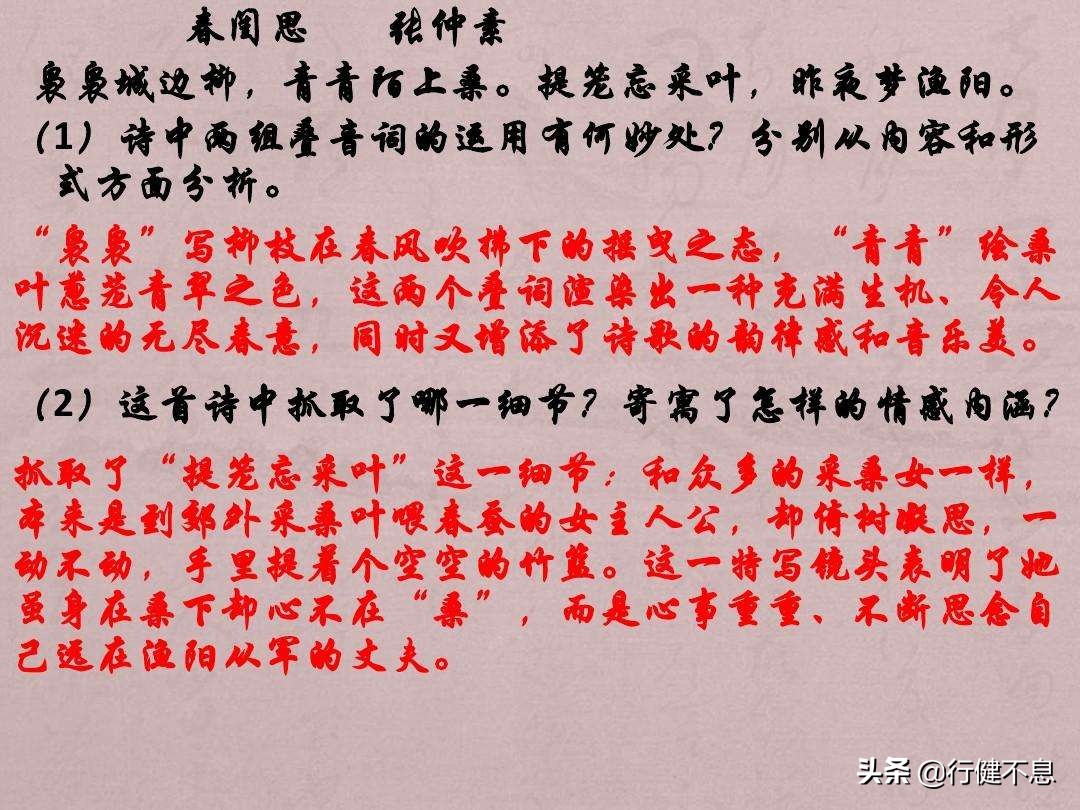 春闺思 张仲素
袅袅城边柳，青青陌上桑。提笼忘采叶，昨夜梦渔阳。
（1）诗中两组叠音词的运用有何妙处？分别从内容和形
式方面分析。
“袅袅”写柳枝在春风吹拂下的摇曳之态，“青青”绘桑
叶葱茏青翠之色，这两个叠词渲染出一种充满生机、令人
沉迷的无尽春意，同时又增添了诗歌的韵律感和音乐美。
（2）这首诗中抓取了哪一细节？寄寓了怎样的情感内涵？
抓取了“提笼忘采叶”这一细节：和众多的采桑女一样，
本来是到郊外采桑叶喂春蚕的女主人公，却倚树凝思，一
动不动，手里提着个空空的竹篮。这一特写镜头表明了她
虽身在桑下却心不在“桑”，而是心事重重、不断思念自
己远在渔阳从军的丈夫。
头条 @行健不息